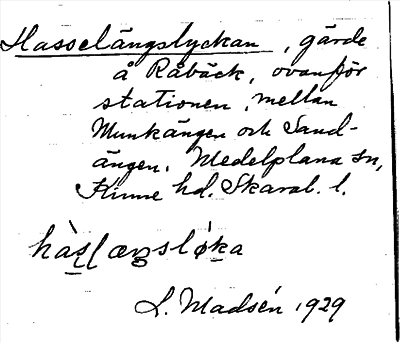 Hasselängslyckan, gärde
å Råbäck, ovanför
stationen, mellan
Munkängen och Sand-
ängen. Medelplana sn,
Kinne hd. Skarab. l.
hàs̲l̲æŋsløk̲a
L. Madsén 1929